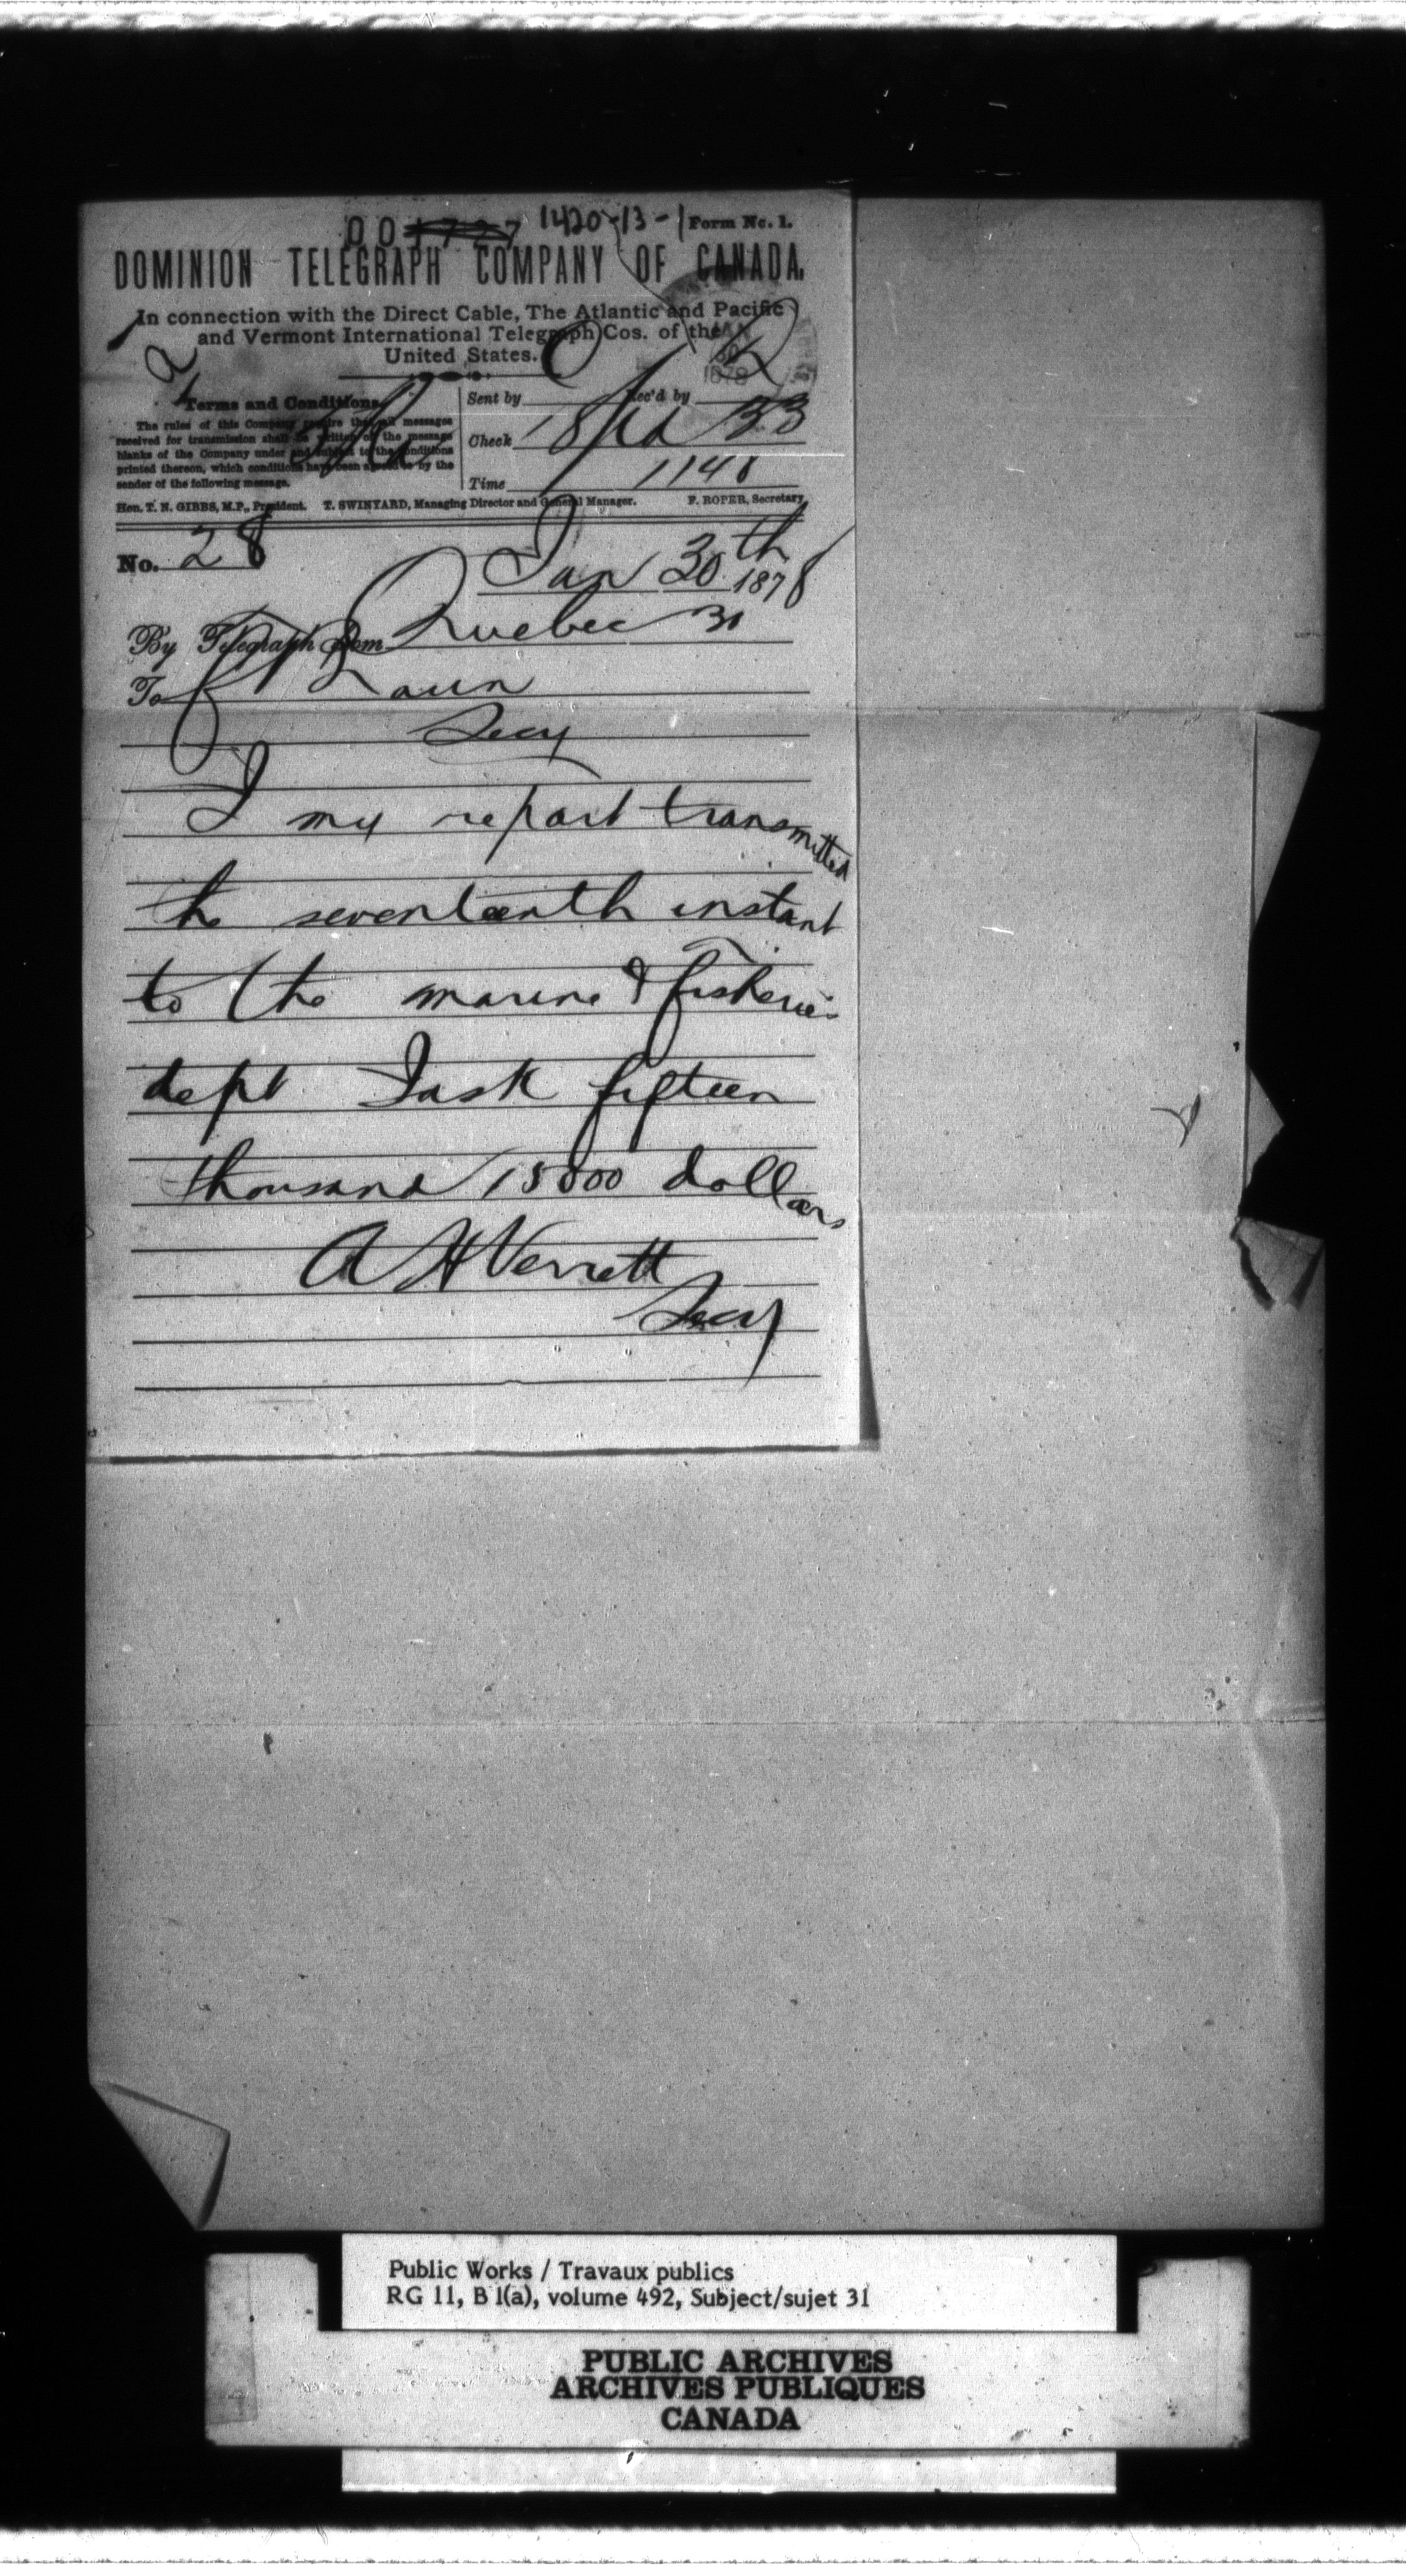 001727 1420-13-1 Form No. 1.
DOMINION TELEGRAPH COMPANY OF CANADA.
In connection with the Direct Cable, The Atlantic and Pacific
and Vermont International Telegraph Cos. of the
United States.
Terms and Conditions.
The rules of this Company require that all messages
received for transmission shall be written on the message
blanks of the Company under and subject to the conditions
printed thereon, which conditions have been agreed to by the
sender of the following message.
Sent by Rec'd by
Check 18 Pd 33
Time 1148
JAN 30 1878
Hon. T. N. GIBBS, M.P., President. T. SWINYARD, Managing Director and General Manager. F. ROPER, Secretary
No. 28
Jan 30th 1878
By Telegraph from Quebec 30
To Braun
Secy
I my report transmitted
the seventeenth instant
to the marine & fisheries
dept I ask fifteen
thousand 15000 dollars
A H Verrett
Secy
Public Works / Travaux publics
RG 11, B 1(a), volume 492, Subject/sujet 31
PUBLIC ARCHIVES
ARCHIVES PUBLIQUES
CANADA